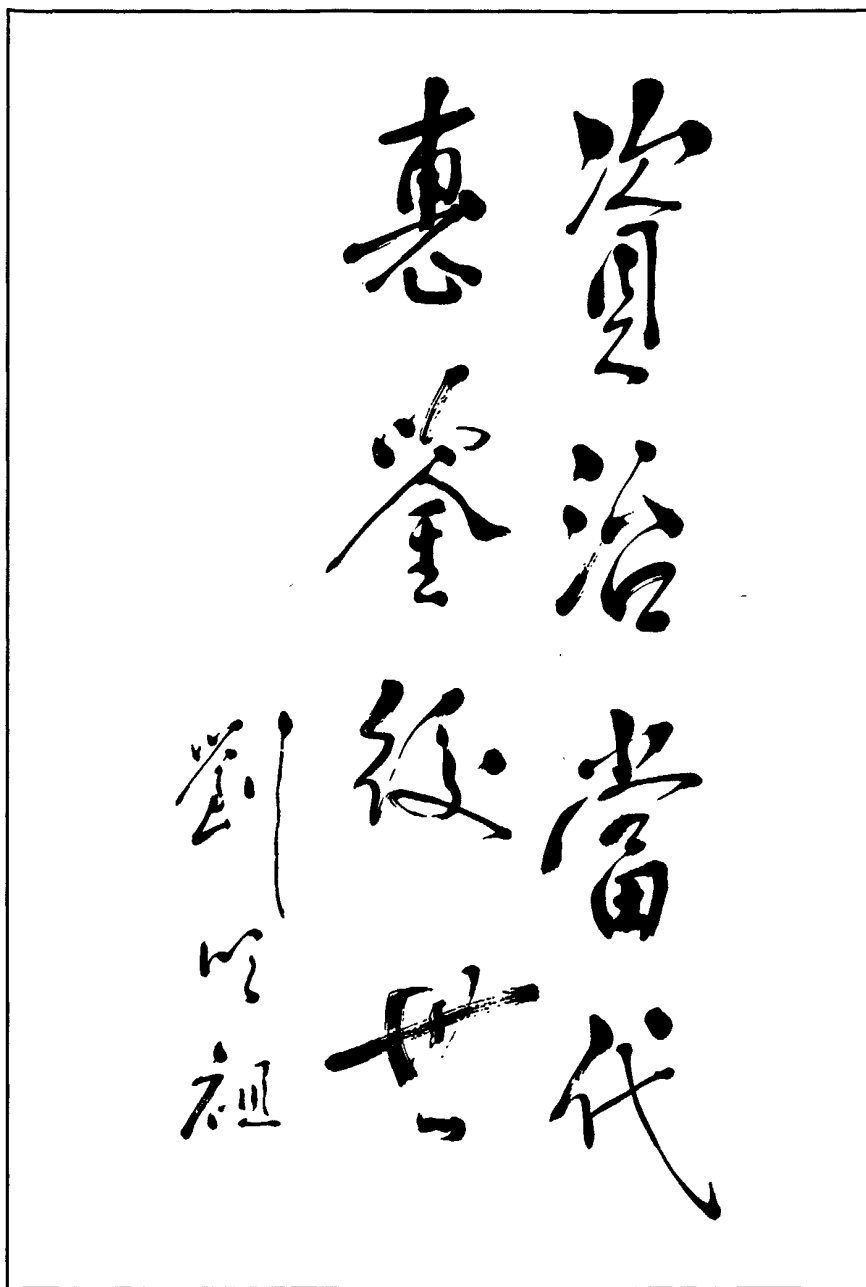 資治當代
惠鉴後世
劉明祖